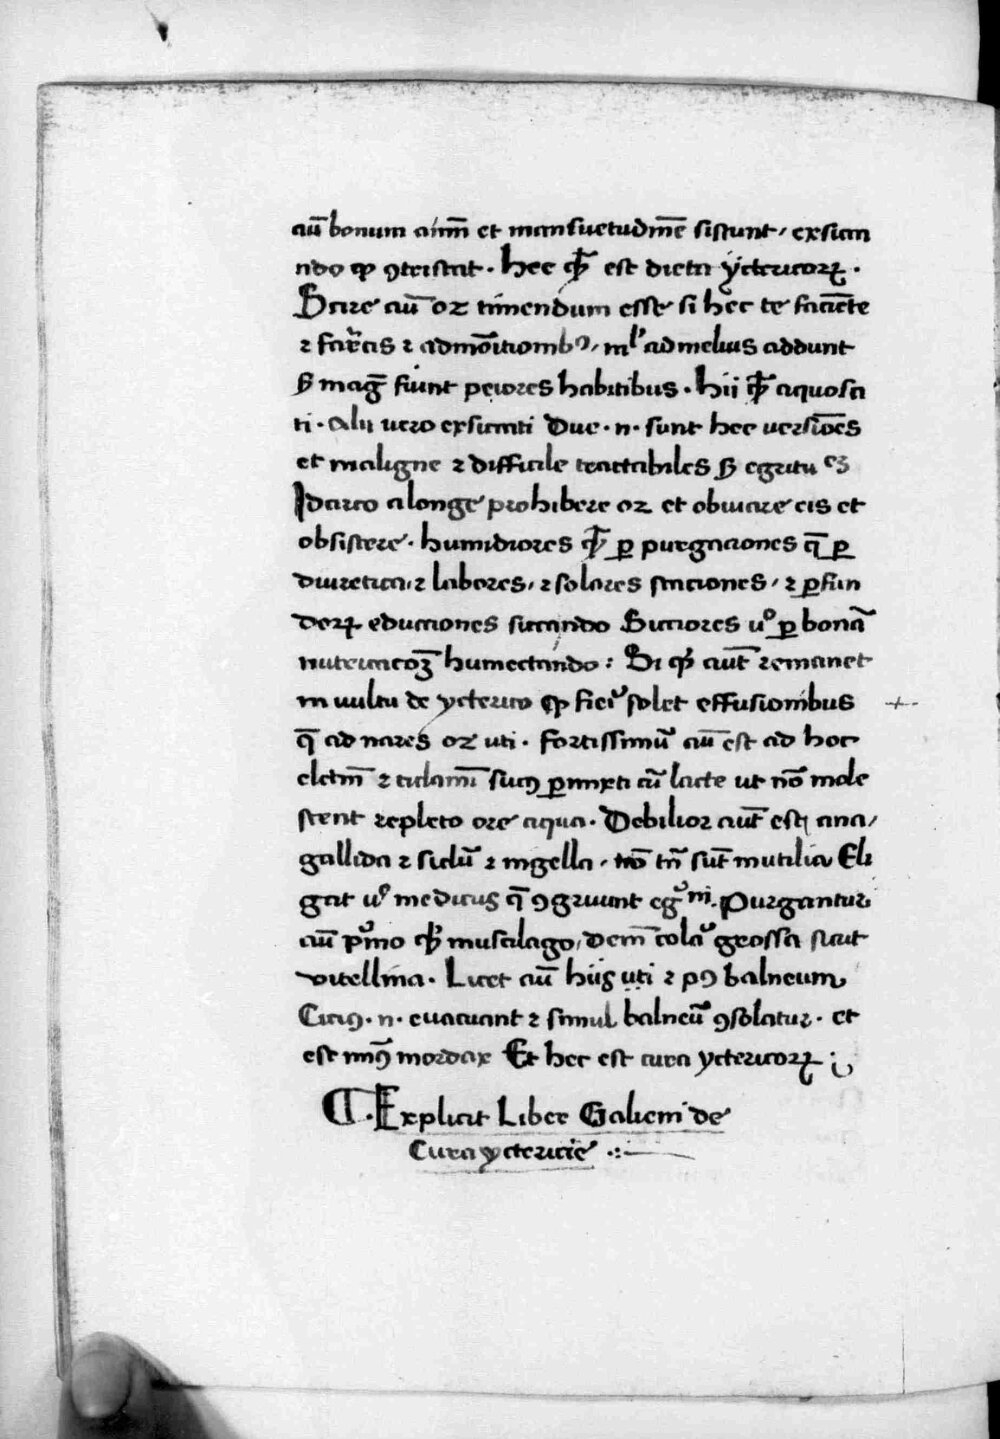 aū bonum aīm̄ et mansuetudinē sistunt / exsican
ndo qp 9tristat . hec q̄ est dieta yctericoꝝ .
Scire aū oꝫ timendum esse si hec te faciēte
⁊ farcīs ⁊ admōitionib9 / ml' ad melius addunt
ß maḡ fiunt peiores habitibus . hii q̄ aquosa
ti . Alii vero exsicati Due . n . sunt hee versiōes
et maligne ⁊ difficile tractabiles ß egritu
Idarco a longe prohibere oꝫ et obuiare eis et
obsistere . humidiores q̄ ꝑ purgaciones q̄ ꝑ
diuretica / ⁊ labores / ⁊ solares staciones / ⁊ ꝑ sun
deꝝ educciones siccando Sicciores u° ꝑ bonā
nutritcoꝫ humectando : Si qͥ aut̄ remanet
in uultu de ycterico qp fieri solet effusionibus
q̄ ad nares oꝫ uti . fortissimū aū est ad hoc
elctm̄ ⁊ ciclamī suc9 ꝑmixti cū lacte ut nō mole
stent repleto ore aqua . Debilior aut̄ est ana /
gallida ⁊ siclū ⁊ nigella . nō tn̄ sūt inutilia Eli
gat u° medicus q̄ 9gruunt egͦni . Purgantur
aū pͥmo q̄ muscilago / dem̄ colā grossa sicut
vitellina . Licet aū hiis uti ⁊ p9 balneum
Citi9 . n . euacuant ⁊ simul balneū 9solatur . et
est min9 mordax Et hec est cura yctericoꝝ :
¶ . Explicit Liber Galieni de
Cura yctericie .: